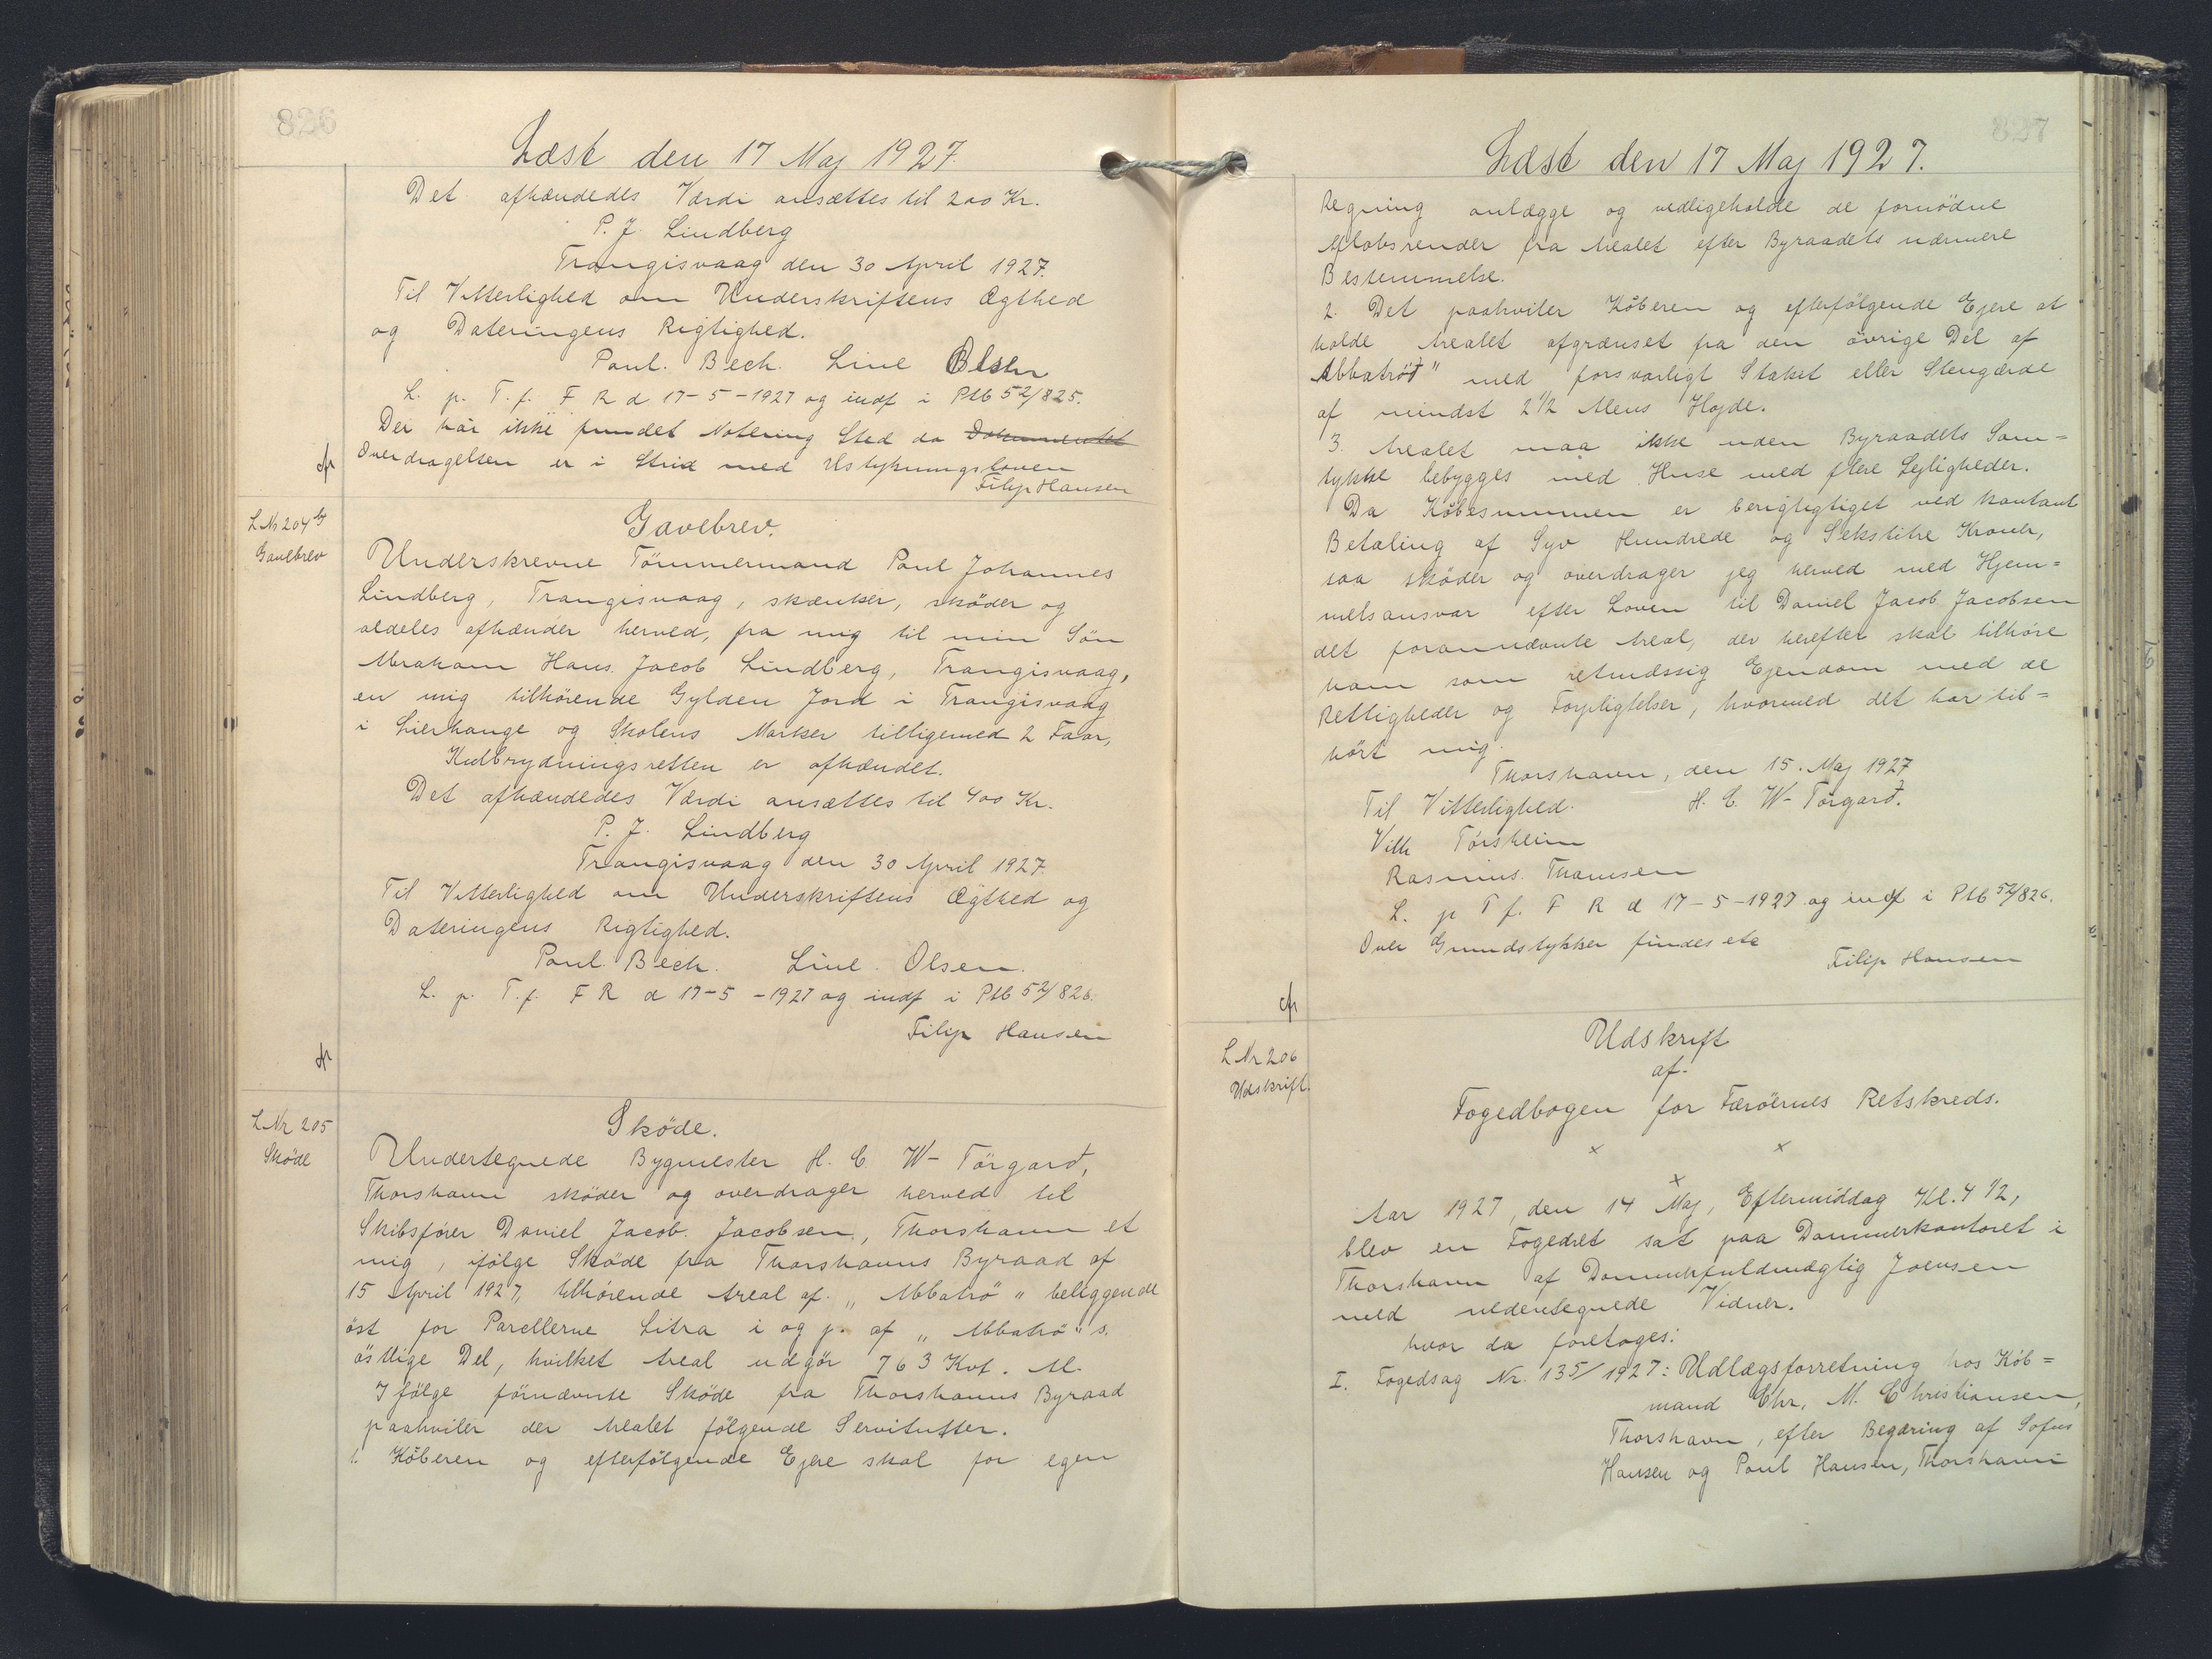 826
Læst den 17 Maj 1927.
Det afhændedes Værdi ansættes til 200 Kr.
P. J. Lindberg
Trangisvaag den 30 April 1927.
Til Vitterlighed om Underskriftens Ægthed
og Dateringens Rigtighed.
Poul. Bech. Line Olsen
L. p. T. f. F R d 17-5-1927 og indf i Ptb 52/825.
Der har ikke fundet Notering Sted da Dokumentet
Overdragelsen er i Strid med Udstykningsloven
Filip Hansen
L Nr 204 b
Gavebrev
Gavebrev.
Underskrevne Tömmermand Poul Johannes
Lindberg, Trangisvaag, skænker, sköder og
aldeles afhænder herved, fra mig til min Sön
Abraham Hans Jacob Lindberg, Trangisvaag,
en mig tilhörende Gylden Jord i Trangisvaag
i Lierhange og Skolens Marker tilligemed 2 Faar,
Kulbrydningsretten er afhændet.
Det afhændedes Værdi ansættes til 400 Kr.
P. J. Lindberg
Trangisvaag den 30 April 1927.
Til Vitterlighed om Underskriftens Ægthed og
Dateringens Rigtighed.
Poul Bech. Line. Olsen.
L. p. T. f. F R d 17-5-1927 og indf i Ptb 52/826.
Filip Hansen
L Nr 205
Sköde
Sköde.
Undertegnede Bygmester H. C. W- Törgarð,
Thorshavn sköder og overdrager herved til
Skibsförer Daniel Jacob. Jacobsen, Thorshavn et
mig, ifölge Sköde fra Thorshavns Byraad af
15 April 1927, tilhörende Areal af „Abbatrö" beliggende
öst for Parcellerne Litra i og j. af „Abbatrö"s.
östlige Del, hvilket Areal udgör 763 Kvf. Al.
Ifölge förnævnte Sköde fra Thorshavns Byraad
paahviler der Arealet fölgende Servitutter.
1. Köberen og efterfölgende Ejere skal for egen
827
Læst den 17 Maj 1927.
Regning anlægge og vedligeholde de fornödne
Aflöbsrender fra Arealet efter Byraadets nærmere
Bestemmelse.
2. Det paahviler Köberen og efterfölgende Ejere at
holde Arealet afgrænset fra den övrige Del af
„Abbatröð" med forsvarligt Stakit eller Stengærde
af mindst 2 1/2 Alens Højde.
3. Arealet maa ikke uden Byraadets Sam=
tykke bebygges med Huse med flere Lejligheder.
Da Köbesummen er berigtigtiget ved kontant
Betaling af Syv Hundrede og Sekstitre Kroner,
saa sköder og overdrager jeg herved med Hjem=
melsansvar efter Loven til Daniel Jacob Jacobsen
det forannævnte Areal, der herefter skal tilhöre
ham som retmæssig Ejendom med de
Rettigheder og Forpligtelser, hvormed det har til=
hört mig.
Thorshavn, den 15. Maj 1927
Til Vitterlighed. H. C. W- Törgarð.
Vilh Tórsheim
Rasmus. Thomsen
L. p T f. F R d 17-5-1927 og indf i Ptb 52/826.
Over Grundstykker findes etc
Filip Hansen
L Nr 206
Udskrift.
Udskrift
af
Fogedbogen for Færöernes Retskreds.
x x
x
Aar 1927, den 14 Maj, Eftermiddag Kl. 4 1/2,
blev en Fogedret sat paa Dommerkontoret i
Thorshavn af Dommerfuldmægtig Joensen
med nedentegnede Vidner.
hvor da foretoges:
I. Fogedsag Nr. 135/1927: Udlægsforretning hos Köb=
mand Chr. M. Christiansen,
Thorshavn, efter Begæring af Sofus
Hansen og Poul Hansen, Thorshavn